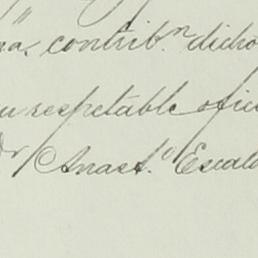 na, contrib.n dicho
su respetable ofici
Dr Anast.o Escala